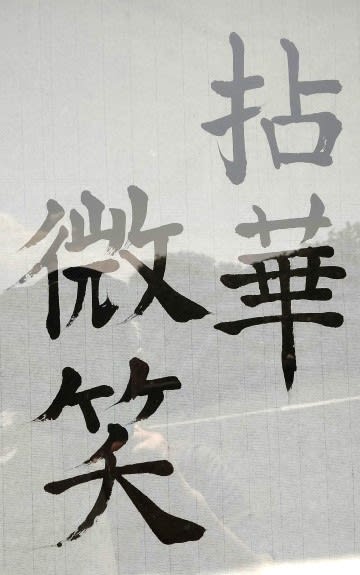 拈華
微笑